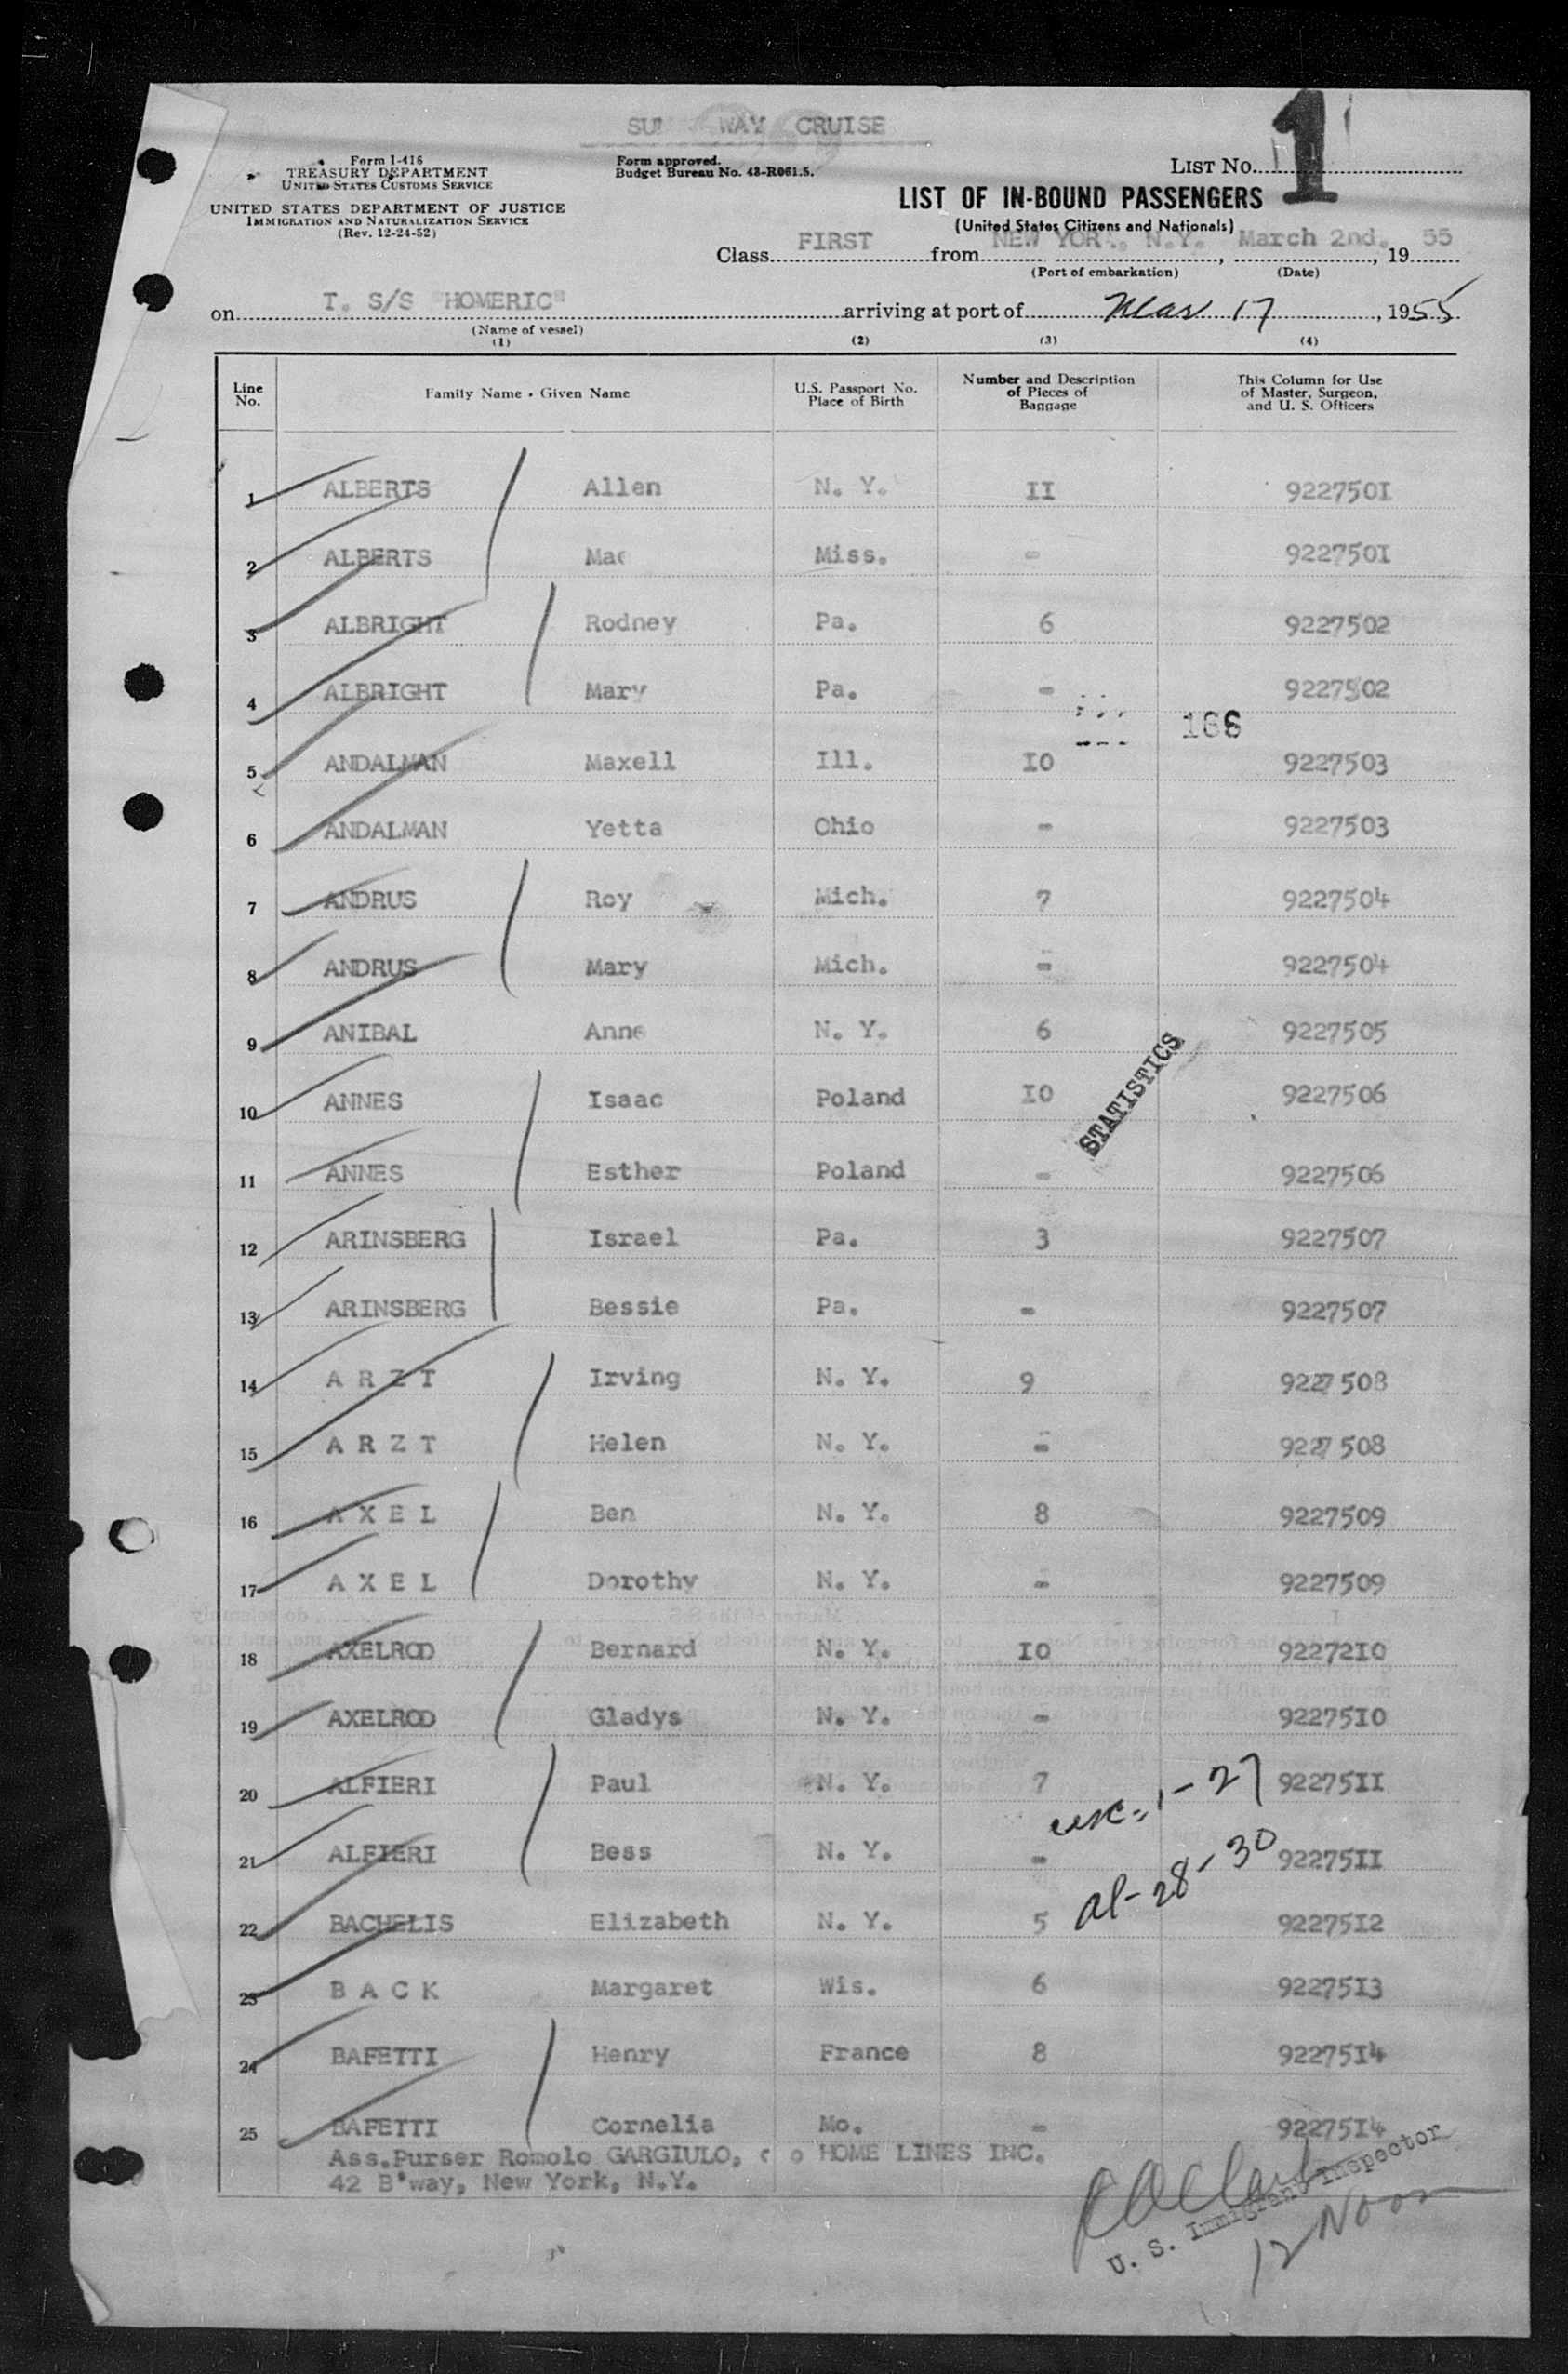 WAY CRUISE
1
Form I-416
TREASURY DEPARTMENT
UNITED STATES CUSTOMS SERVICE
UNITED STATES DEPARTMENT OF JUSTICE
IMMIGRATION AND NATURALIZATION SERVICE
(Rev. 12-24-52)
Form approved.
Budget Bureau No. 43-R061.5.
LIST No.
LIST OF IN-BOUND PASSENGERS
(United States Citizens and Nationals)
Class FIRST from NEW YORK, N.Y., March 2nd., 19 55
(Port of embarkation) (Date)
on T. S/S "HOMERIC" arriving at port of Mar 17, 1955
(Name of vessel)
(1) (2) (3) (4)
Line No. Family Name - Given Name U.S. Passport No. Place of Birth Number and Description of Pieces of Baggage This Column for Use of Master, Surgeon, and U. S. Officers
1 ALBERTS Allen N. Y. II 922750I
2 ALBERTS Mae Miss. - 922750I
3 ALBRIGHT Rodney Pa. 6 9227502
4 ALBRIGHT Mary Pa. - 9227502
168
5 ANDALMAN Maxell Ill. IO 9227503
6 ANDALMAN Yetta Ohio - 9227503
7 ANDRUS Roy Mich. 7 9227504
8 ANDRUS Mary Mich. - 9227504
9 ANIBAL Anne N. Y. 6 9227505
10 ANNES Isaac Poland IO 9227506
STATISTICS
11 ANNES Esther Poland - 9227506
12 ARINSBERG Israel Pa. 3 9227507
13 ARINSBERG Bessie Pa. - 9227507
14 A R Z T Irving N. Y. 9 9227508
15 A R Z T Helen N. Y. - 9227508
16 A X E L Ben N. Y. 8 9227509
17 A X E L Dorothy N. Y. - 9227509
18 AXELROD Bernard N. Y. IO 92272IO
19 AXELROD Gladys N. Y. - 92275IO
20 ALFIERI Paul N. Y. 7 92275II
usc-1-27
21 ALFIERI Bess N. Y. - 92275II
al-28-30
22 BACHELIS Elizabeth N. Y. 5 92275I2
23 B A C K Margaret Wis. 6 92275I3
24 BAFETTI Henry France 8 92275I4
25 BAFETTI Cornelia Mo. - 92275I4
Ass.Purser Romolo GARGIULO, c o HOME LINES INC.
42 B'way, New York, N.Y.
U. S. Immigrant Inspector
12 Noon